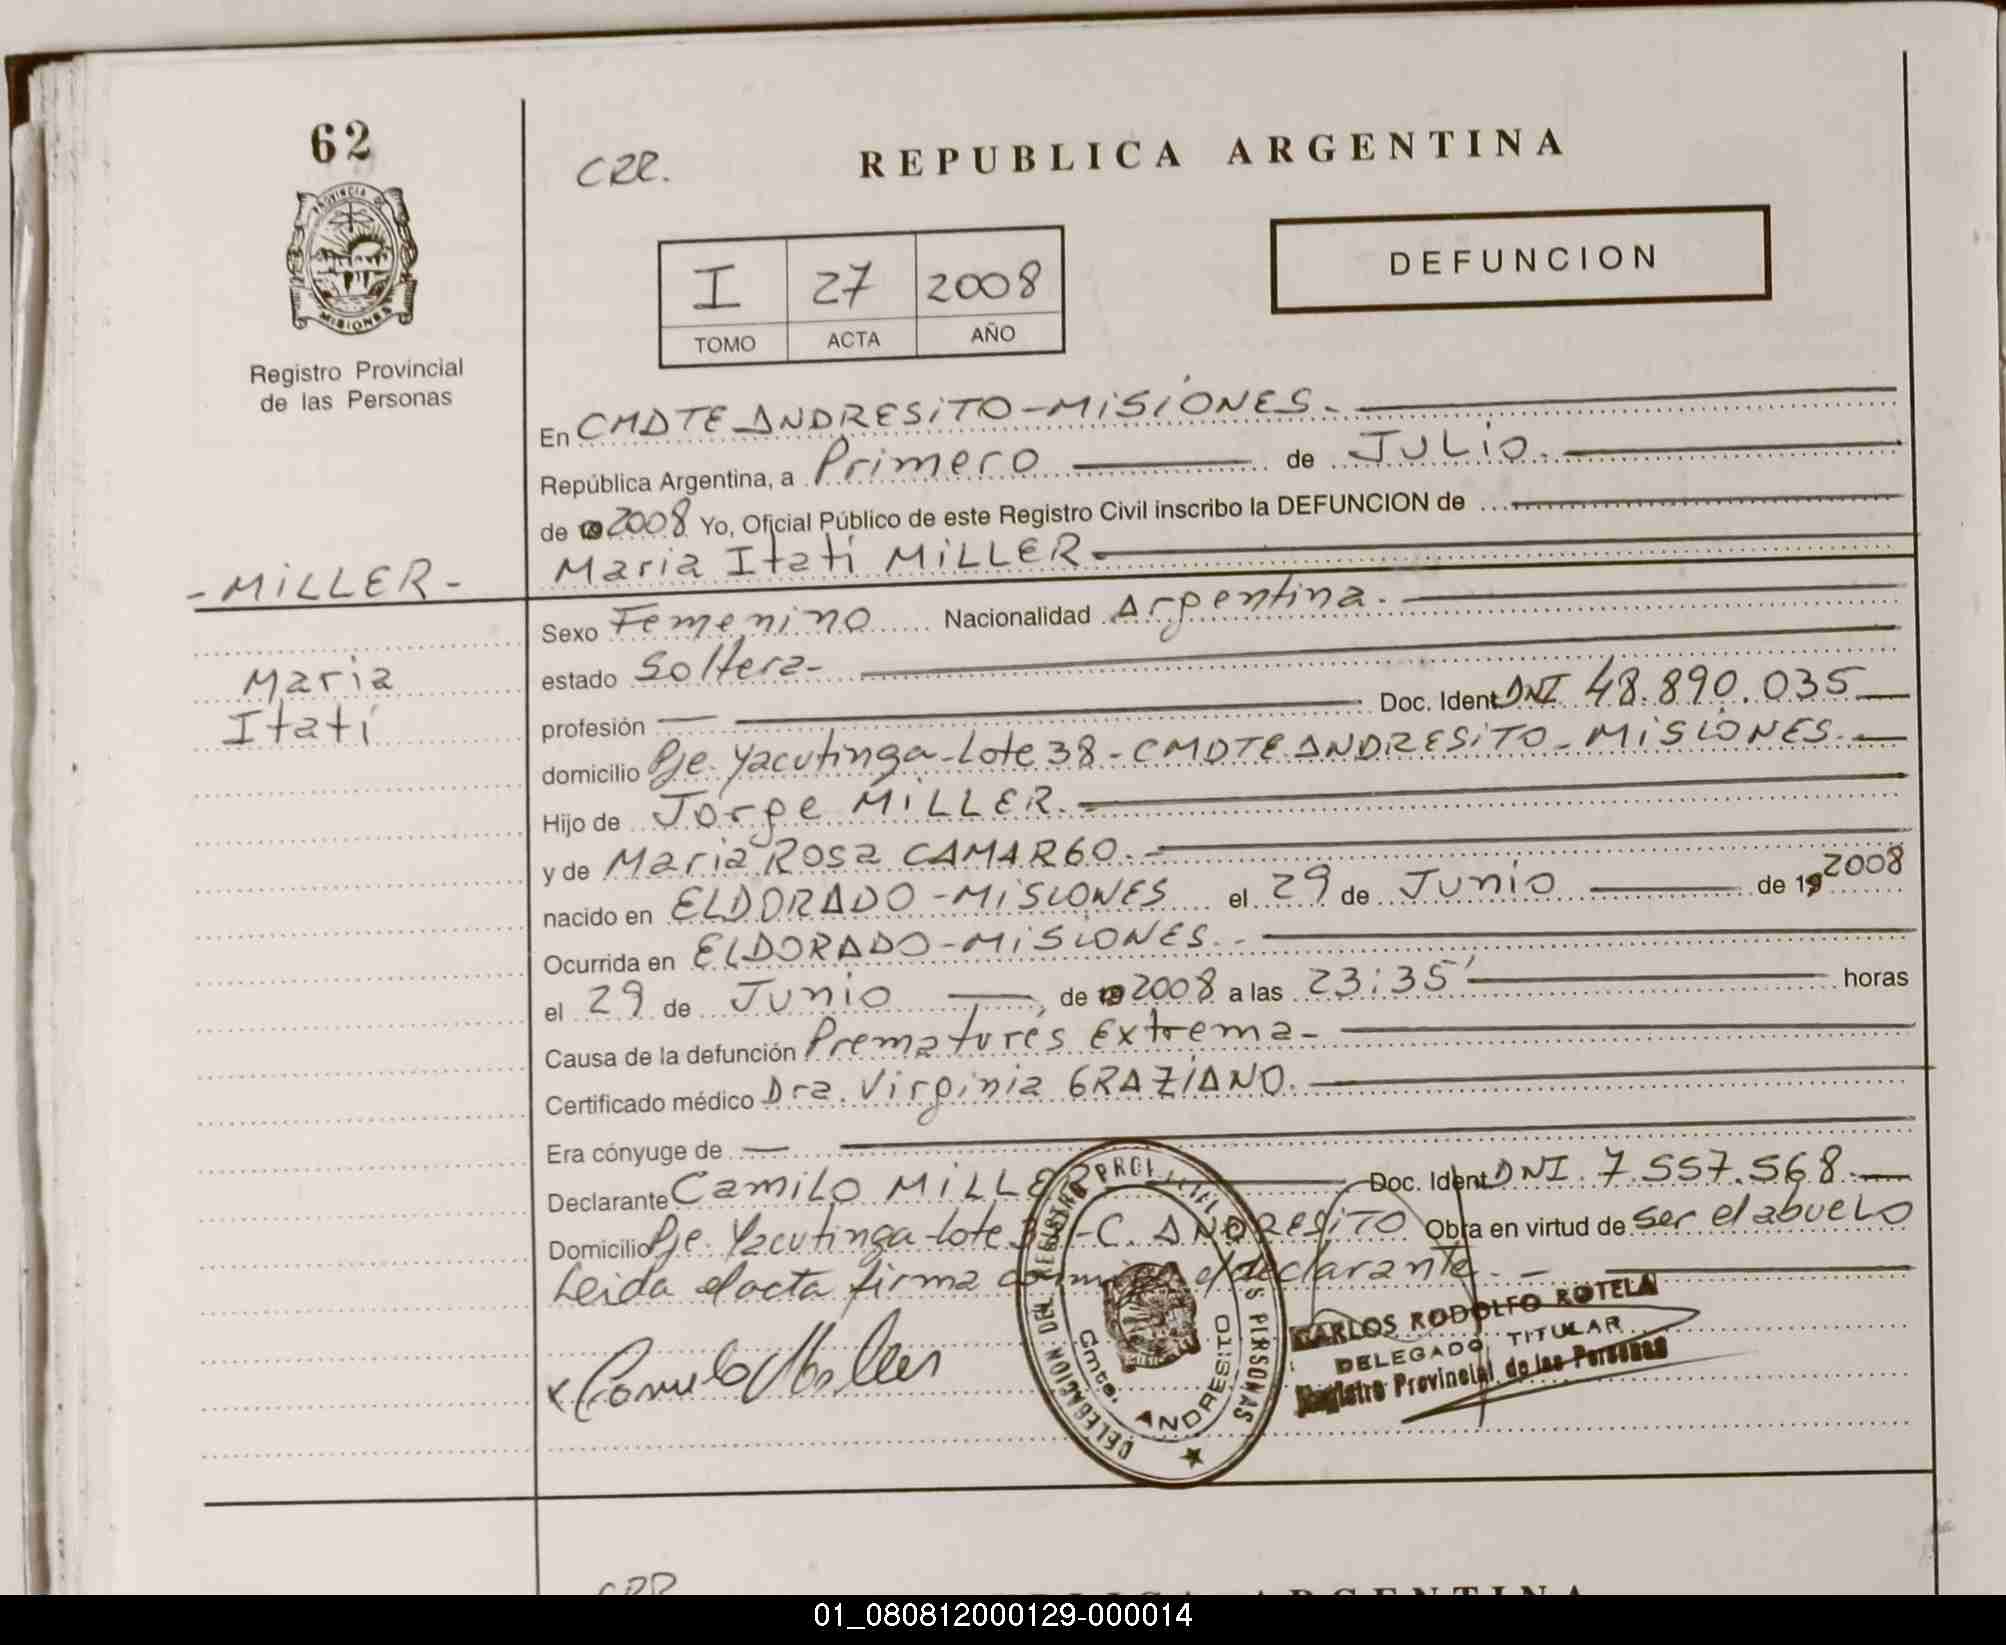 62
CRR.
REPUBLICA ARGENTINA
PROVINCIA DE
MISIONES
I 27 2008
TOMO ACTA AÑO
DEFUNCION
Registro Provincial
de las Personas
En CMDTE ANDRESITO-MISIONES.-
República Argentina, a Primero de JULIO.
de 2008 Yo, Oficial Público de este Registro Civil inscribo la DEFUNCION de
- MILLER -
Maria Itatí MILLER
Sexo Femenino Nacionalidad Argentina.
Maria
Itatí
estado Soltera-
profesión — Doc. Ident DNI 48.890.035
domicilio Pje. Yacutinga-Lote 38-CMDTE ANDRESITO-MISIONES.
Hijo de Jorge MILLER.
y de Maria Rosa CAMARGO.-
nacido en ELDORADO-MISIONES el 29 de JUNIO de 19 2008
Ocurrida en ELDORADO-MISIONES.-
el 29 de JUNIO de 19 2008 a las 23:35' horas
Causa de la defunción Prematurés Extrema-
Certificado médico Dra. Virginia GRAZIANO.
Era cónyuge de —
Declarante Camilo MILLER Doc. Ident DNI 7.557.568.
Domicilio Pje. Yacutinga-lote -C. ANDRESITO Obra en virtud de ser el abuelo
Leida el acta firma conmigo el declarante.-
x Camilo Miller
DELEGACION DEL REGISTRO PROVINCIAL DE LAS PERSONAS
Cmte. ANDRESITO
CARLOS RODOLFO ROTELA
DELEGADO TITULAR
Registro Provincial de las Personas
CRR
REPUBLICA ARGENTINA
01_080812000129-000014